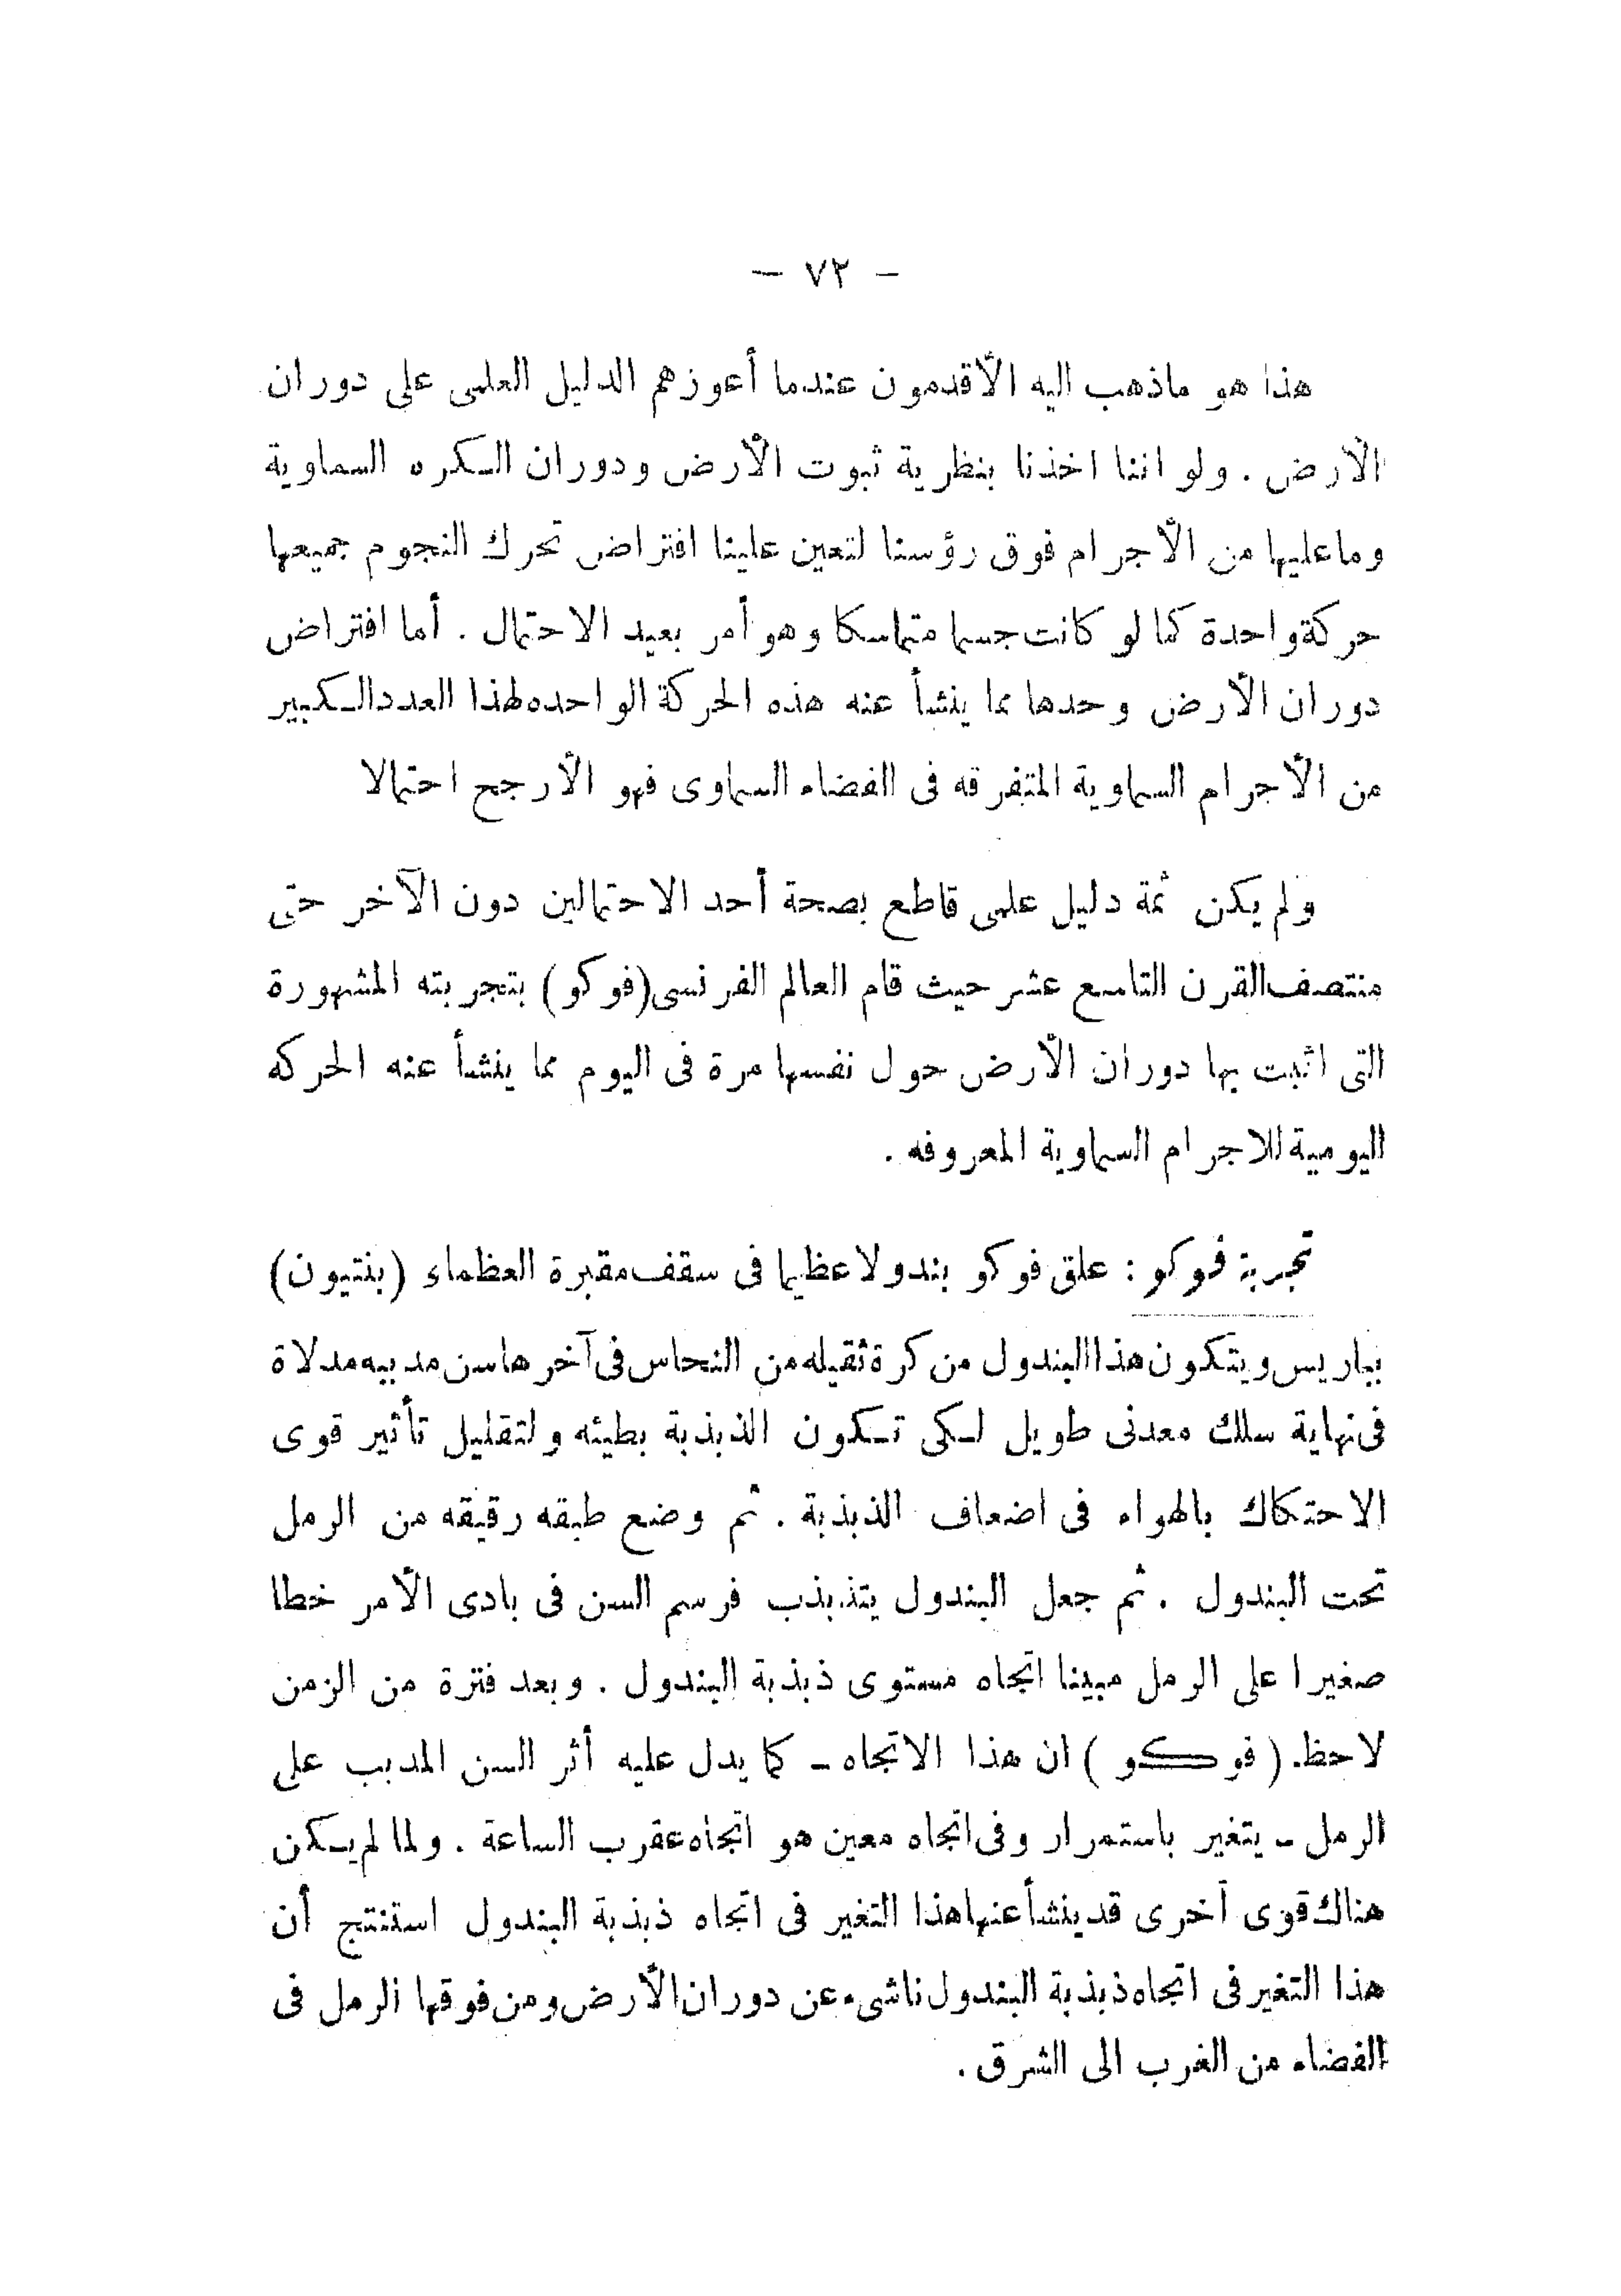 – ٧٢ –
هذا هو ماذهب اليه الأقدمون عندما أعوزهم الدليل العلمى على دوران
الأرض . ولو اننا اخذنا بنظرية ثبوت الأرض ودوران الكره السماوية
وماعليها من الأجرام فوق رؤسنا لتعين علينا افتراض تحرك النجوم جميعها
حركة واحدة كما لو كانت جسما متماسكا وهو أمر بعيد الاحتمال . أما افتراض
دوران الأرض وحدها مما ينشأ عنه هذه الحركة الواحده لهذا العدد الكبير
من الأجرام السماوية المتفرقه فى الفضاء السماوى فهو الأرجح احتمالا
ولم يكن ثمة دليل علمى قاطع بصحة أحد الاحتمالين دون الآخر حتى
منتصف القرن التاسع عشر حيث قام العالم الفرنسى (فوكو) بتجربته المشهورة
التى اثبت بها دوران الأرض حول نفسها مرة فى اليوم مما ينشأ عنه الحركه
اليومية للاجرام السماوية المعروفه .
تجربة فوكو : علق فوكو بندولا عظيما فى سقف مقبرة العظماء (بنتيون)
بباريس ويتكون هذا البندول من كرة ثقيله من النحاس فى آخرها سن مدببه مدلاة
فى نهاية سلك معدنى طويل لكى تكون الذبذبة بطيئه ولتقليل تأثير قوى
الاحتكاك بالهواء فى اضعاف الذبذبة . ثم وضع طبقه رقيقه من الرمل
تحت البندول . ثم جعل البندول يتذبذب فرسم السن فى بادى الأمر خطا
صغيرا على الرمل مبينا اتجاه مستوى ذبذبة البندول . وبعد فترة من الزمن
لاحظ ( فوكو ) ان هذا الاتجاه – كما يدل عليه أثر السن المدبب على
الرمل – يتغير باستمرار وفى اتجاه معين هو اتجاه عقرب الساعة . ولما لم يكن
هناك قوى آخرى قد ينشأ عنها هذا التغير فى اتجاه ذبذبة البندول استنتج أن
هذا التغير فى اتجاه ذبذبة البندول ناشىء عن دوران الأرض ومن فوقها الرمل فى
الفضاء من الغرب الى الشرق .